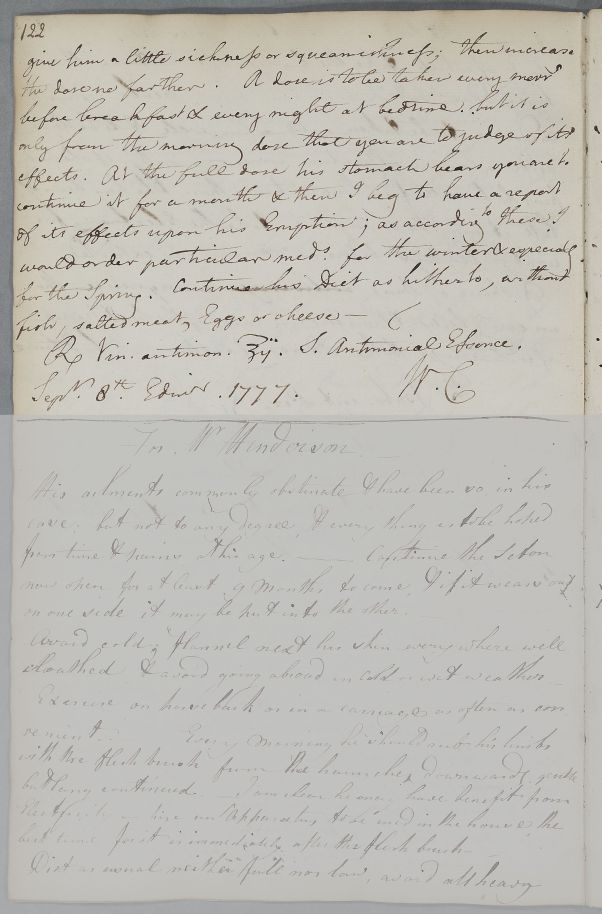 122
give him a little sickness or squeamishness; then increase
the dose no farther. A dose is to be taken every morn^g
before breakfast & every night at bedtime. but it is
only from the morning dose that you are to judge of its
effects. At the full dose his stomach bears you are to
continue it for a month & then I beg to have a report
of its effects upon his Eruption; as according to these I
would order particular med^s. for the winter & especially
for the Spring. Continue his Diet as hitherto, without
fish, salted meat, Eggs or cheese —
℞ Vin. antimon. ℥ij. S. Antimonial Essence.
Sept^r. 8^th. Edin^r. 1777. W. C.
For M^r Henderson
His ailments commonly obstinate & have been so in his
case; but not to any degree, & every thing is to be hoped
from time & pains at his age. — Continue the Seton
now open for at least 9 months to come, & if it wears out
on one side it may be put into the other.
Avoid cold; flannel next his skin every where well
cloathed & avoid going abroad in cold or wet weather —
Exercise on horseback or in a carriage as often as con
venient. — Every morning he should rub his limbs
with the flesh brush from the haunches downwards, gentle
but long continued. — I am clear he may have benefit from
an Apparatus to be used in the house, the
best time for it is immediately after the flesh brush —
Diet as usual neither full nor low, avoid all heavy